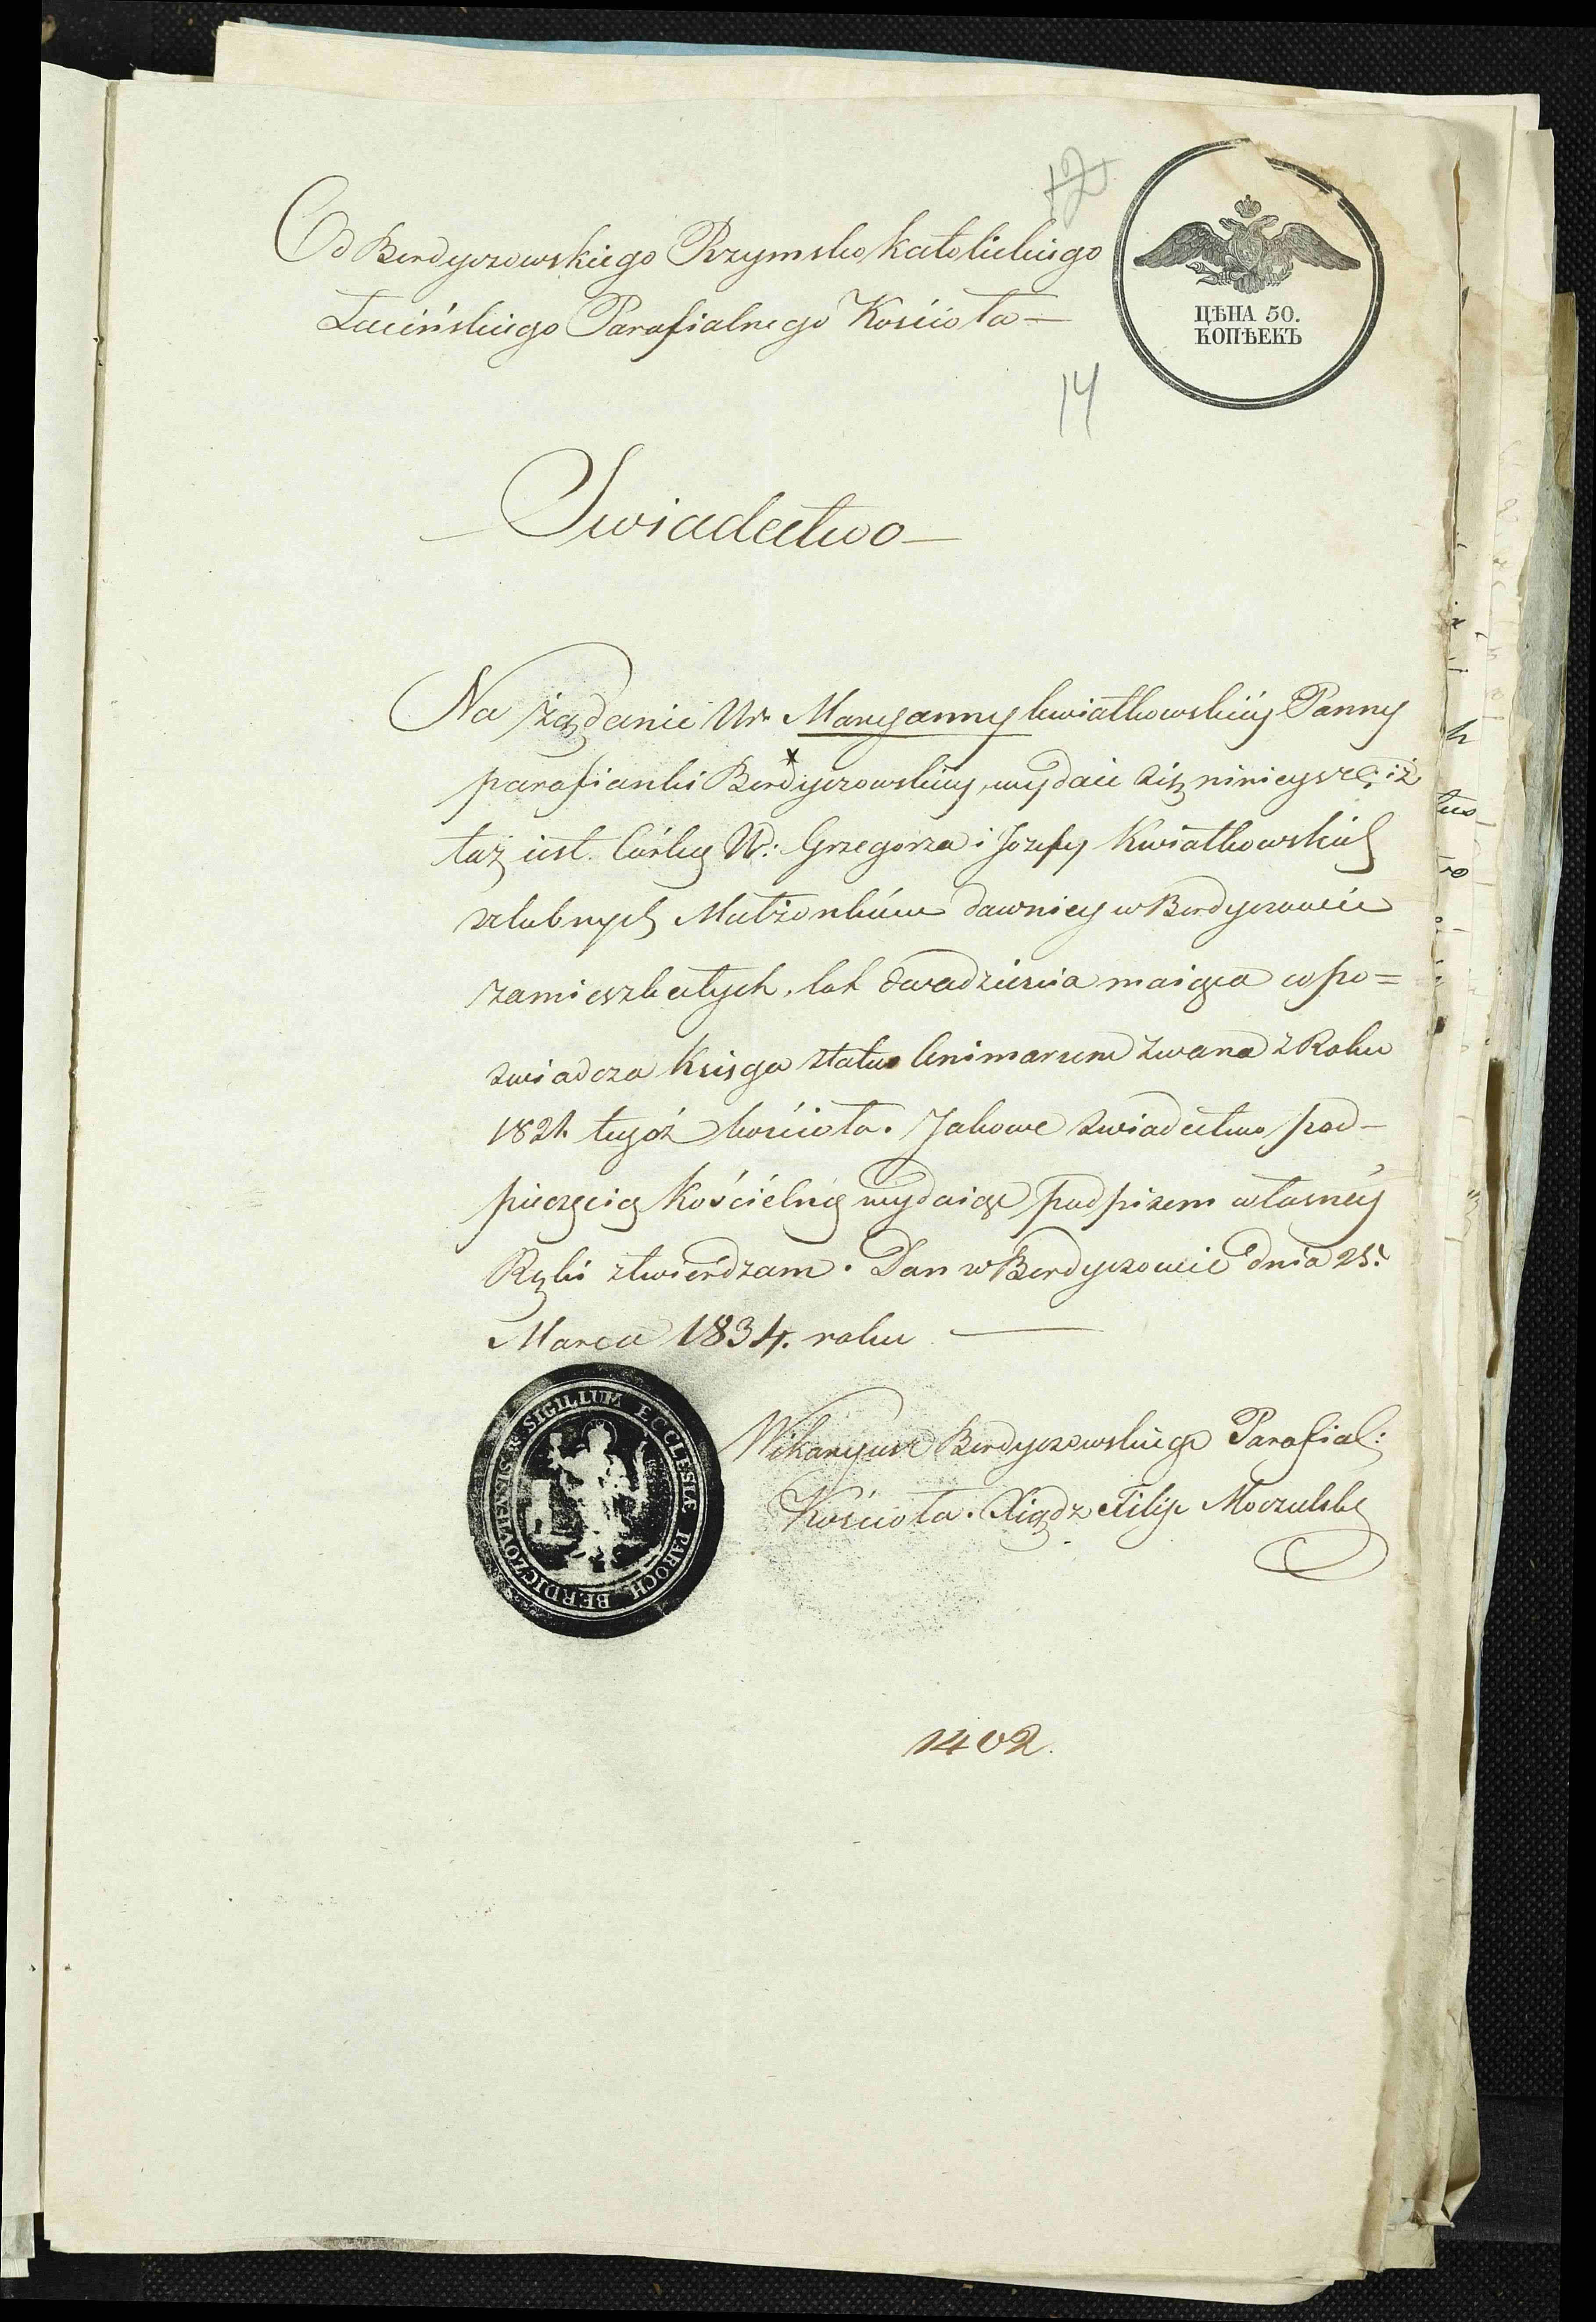 Od Berdyczowskiego Rzymsko katolickiego
Łacińskiego Parafialnego Kościoła —
ЦѢНА 50.
КОПѢЕКЪ
14
— Swiadectwo —
Na żądanie Ur. Maryanny Kwiatkowskiey Panny
parafianki Berdyczowskiey, wydaie się ninieysze; iż
taż iest Córką U: Grzegorza i Jozefy Kwiatkowskich
szlubnych Małżonków dawniey w Berdyczowie
zamieszkałych, lat dwadzieścia maiąca co po=
swiadcza Księga status Animarum zwana z Roku
1821. tegoż kościoła. Jakowe swiadectwo pod-
pieczęcią Kościelną wydaiąc podpisem własney
Ręki ztwierdzam. Dan w Berdyczowie dnia 25.
Marca 1834. roku —
SIGILLUM ECCLESIÆ PAROCH BERDICZOVIENSIS
Wikaryusz Berdyczowskiego Parafial:
Kościoła. Xiądz Filip Moczulski
1402.